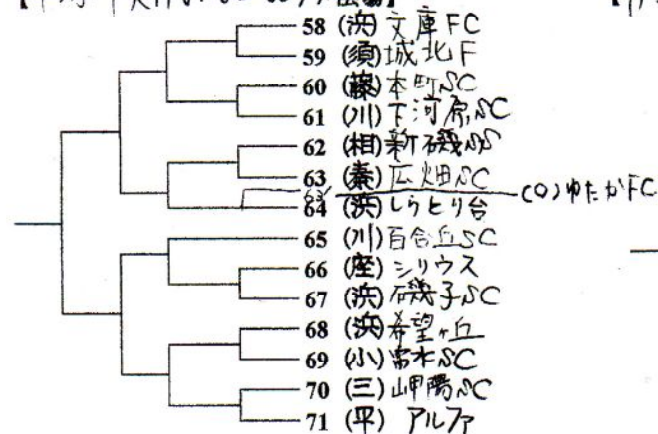 58 (浜) 文庫FC
59 (須) 城北F
60 (藤) 本町SC
61 (川) 下河原SC
62 (相) 新磯SS
63 (秦) 広畑SC
(0) ゆたかFC
64 (浜) しらとり台
65 (川) 百合丘SC
66 (座) シリウス
67 (浜) 磯子SC
68 (浜) 希望ヶ丘
69 (小) 富水SC
70 (三) 岬陽SC
71 (平) アルファ